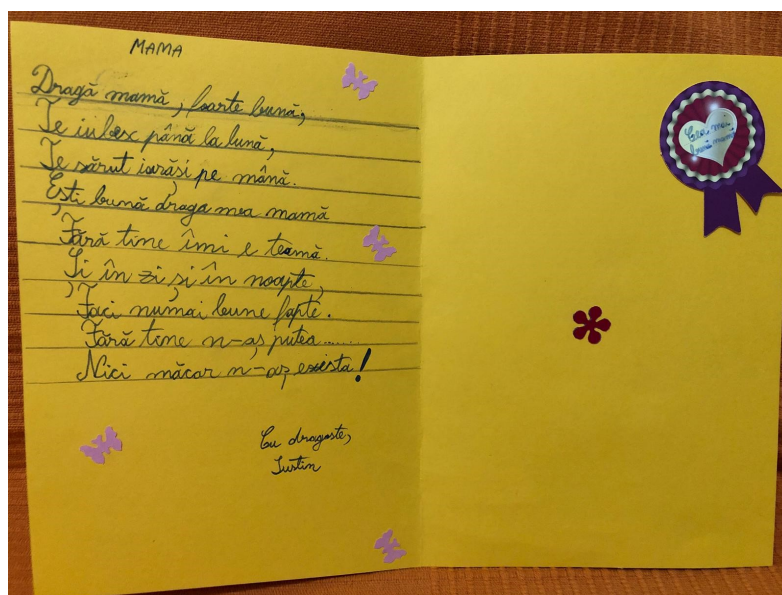 MAMA
Dragă mamă, foarte bună,
Te iubesc până la lună,
Te sărut iarăși pe mână.
Ești bună draga mea mamă
Fără tine îmi e teamă.
Și în zi și în noapte,
Faci numai bune fapte.
Fără tine n-aș putea......
Nici măcar n-aș exista!
Cu dragoste,
Iustin
Cea mai
bună mamă